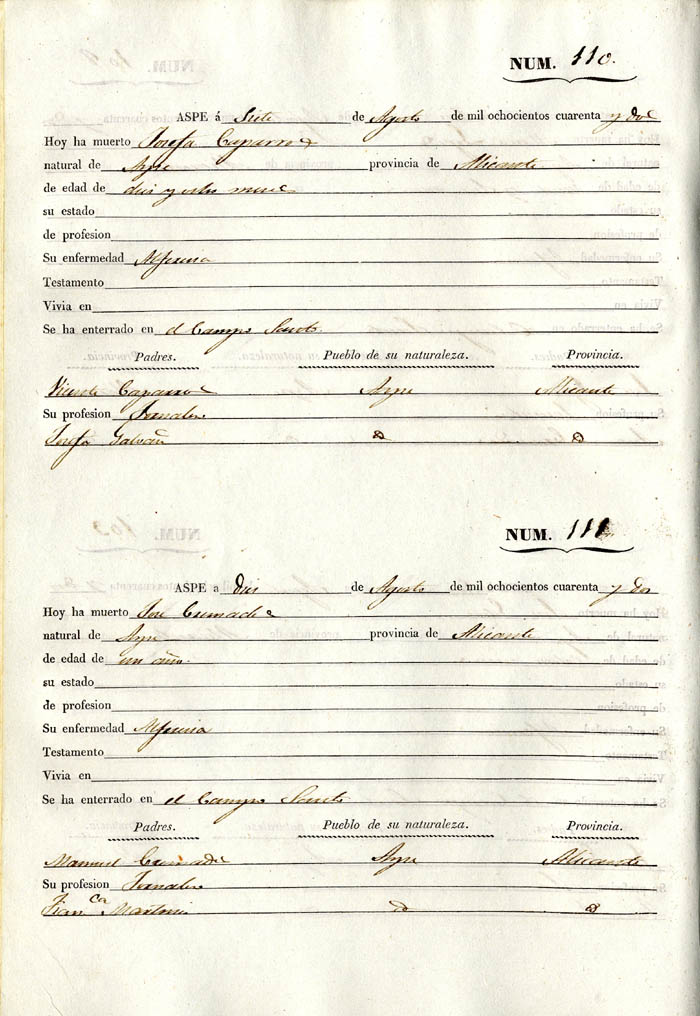 NUM. 110.
ASPE á Siete de Agosto de mil ochocientos cuarenta y dos
Hoy ha muerto Josefa Caparros
natural de Aspe provincia de Alicante
de edad de dies y ocho meses
su estado
de profesion
Su enfermedad Alferecia
Testamento
Vivia en
Se ha enterrado en el Campo Santo
Padres. Pueblo de su naturaleza. Provincia.
Vicente Caparros Aspe Alicante
Su profesion Jornalero
Josefa Galvañ
NUM. 111
ASPE a dies de Agosto de mil ochocientos cuarenta y dos
Hoy ha muerto Jose
natural de Aspe provincia de Alicante
de edad de un año
su estado
de profesion
Su enfermedad Alferecia
Testamento
Vivia en
Se ha enterrado en el Campo Santo
Padres. Pueblo de su naturaleza. Provincia.
Manuel Aspe Alicante
Su profesion Jornalero
Franca